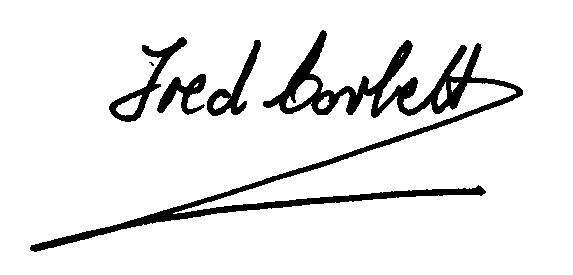 Fred Corbett